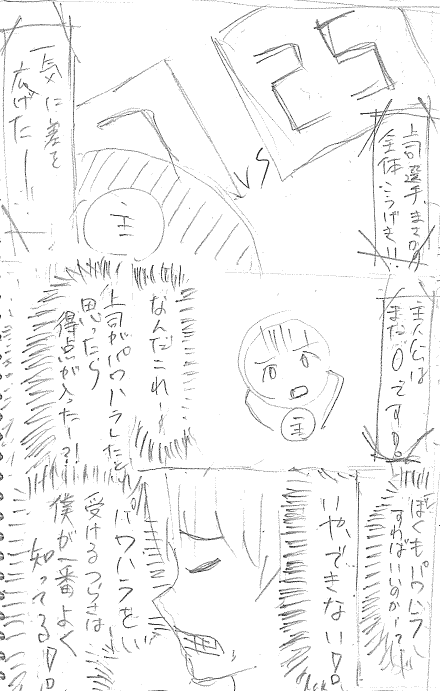 上司選手、まさかの
全体こうげき!!
25
VS
7
主
一気に差を
広げたー!!
主人公は
まだ0です!
主
なんだこれー!
上司がパワハラしたと
思ったら
得点が入ったー?!
ぼくもパワハラ
すればいいのかーって
いや、できない!
パワハラを
受けるつらさは
僕が一番よく
知ってる!